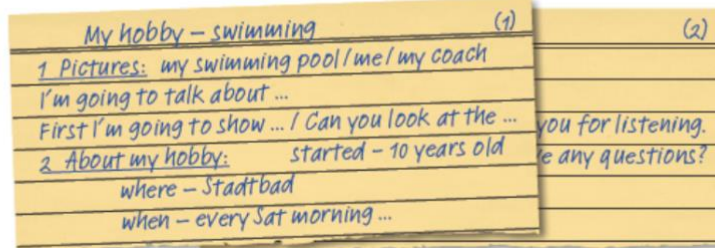 My hobby – swimming (1)
1 Pictures: my swimming pool / me / my coach
I'm going to talk about ...
First I'm going to show ... / Can you look at the ...
2 About my hobby: started – 10 years old
where – Stadtbad
when – every Sat morning ...
(2)
you for listening.
any questions?